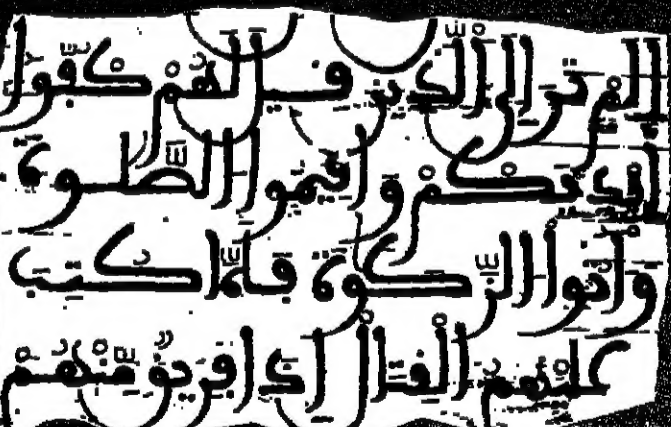 الم تر الى الذين قيل لهم كفوا
ايديكم واقيموا الصلوة
واتوا الزكوة فلما كتب
عليهم القتال اذا فريق منهم